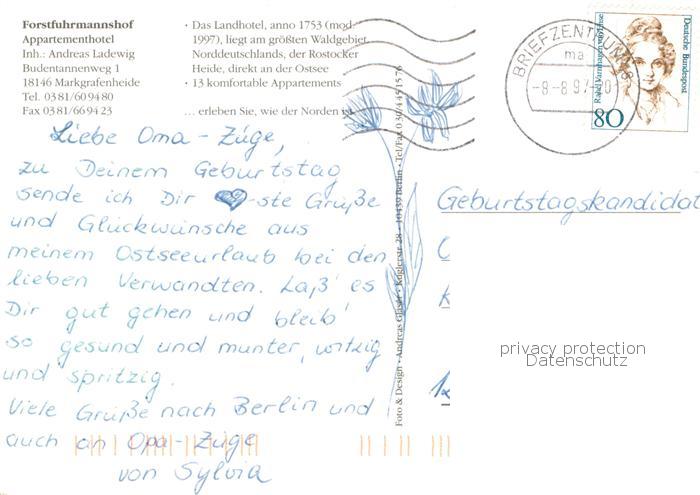 Forstfuhrmannshof
Appartementhotel
Inh.: Andreas Ladewig
Budentannenweg 1
18146 Markgrafenheide
Tel. 0381/609480
Fax 0381/669423
· Das Landhotel, anno 1753 (mod.
1997), liegt am größten Waldgebiet
Norddeutschlands, der Rostocker
Heide, direkt an der Ostsee
· 13 komfortable Appartements
… erleben Sie, wie der Norden
Liebe Oma - Züge,
zu Deinem Geburtstag
sende ich Dir -ste Grüße
und Glückwünsche aus
meinem Ostseeurlaub bei den
lieben Verwandten. Laß' es
Dir gut gehen und bleib'
so gesund und munter, witzig
und spritzig.
Viele Grüße nach Berlin und
auch an Opa-Züge
von Sylvia
Foto & Design · Andreas · 28 · 10439 Berlin · Tel/Fax 030/445 15 76
BRIEFZENTRUM 18
ma
-9.-8.97-20
Rahel Varnhagen von Ense
Deutsche Bundespost
80
Geburtstagskandidat
privacy protection
Datenschutz